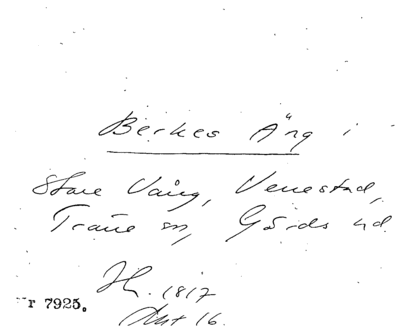 Berkes Äng i
Stare Vång, Venestad,
Träne sn, Gärds hd
Hr. 1817
Akt 16.
r 7925.